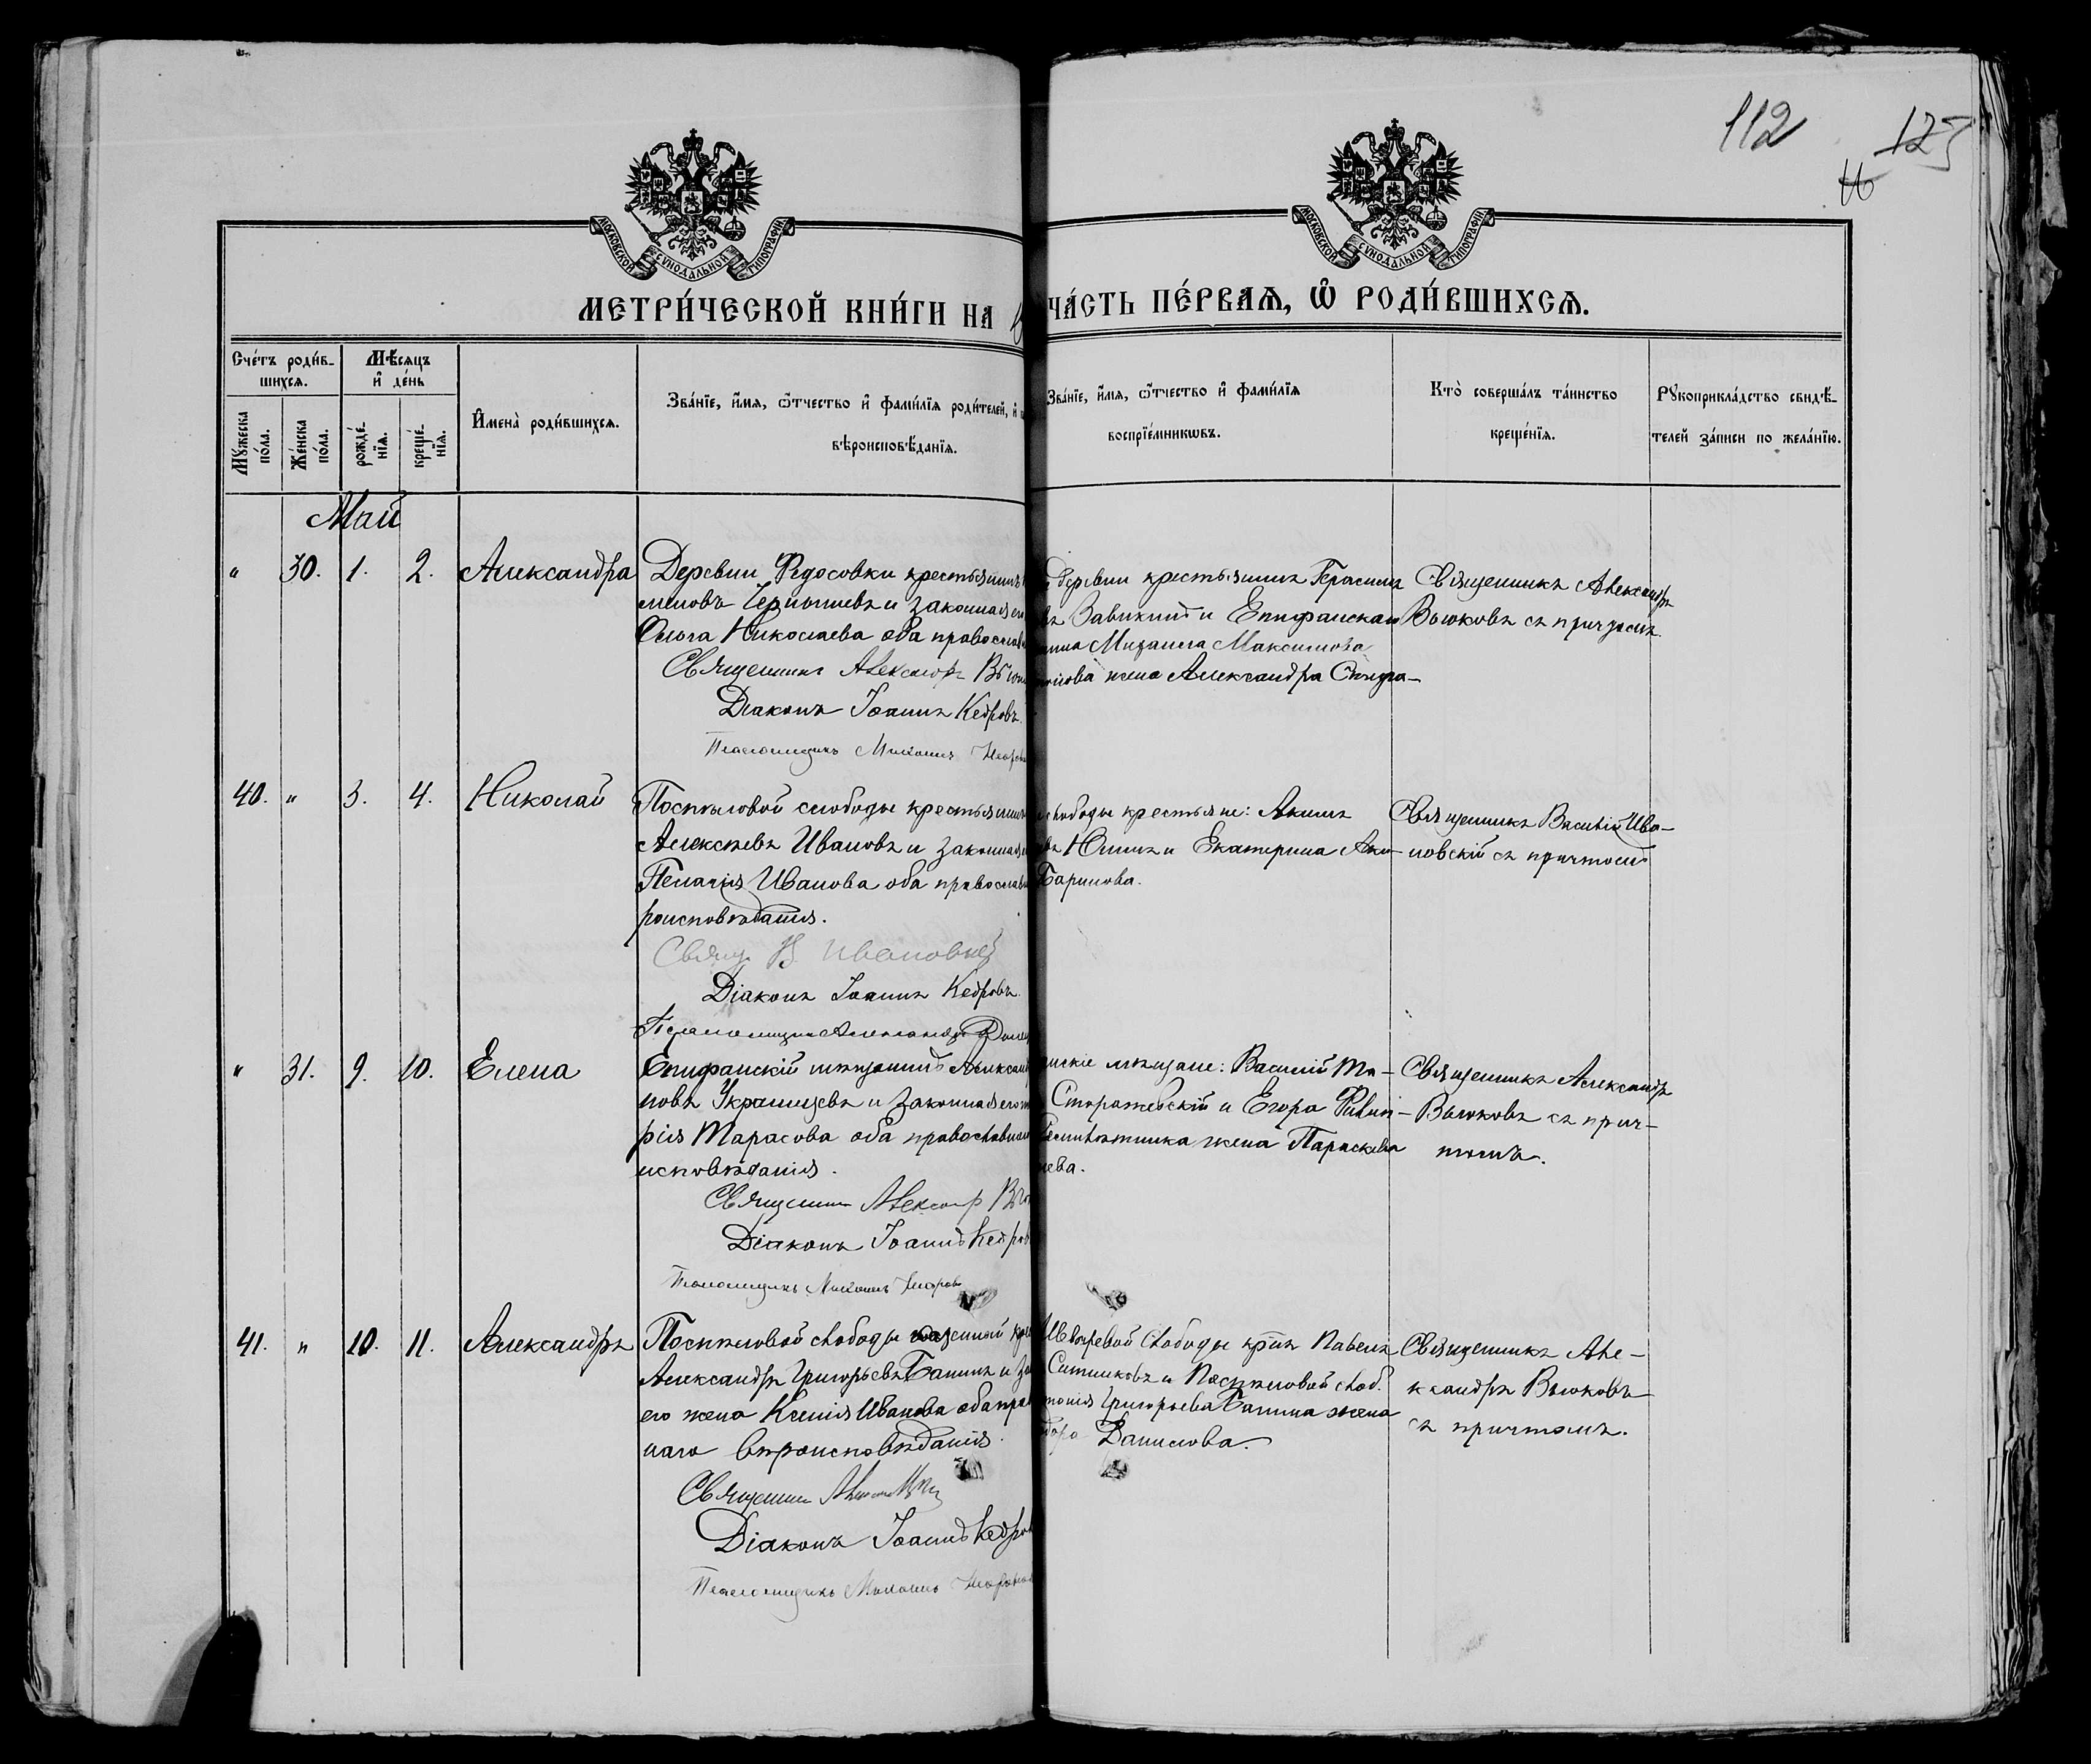 112
125
МОСКОВСКОЙ СУНОДАЛЬНОЙ ТИПОГРАФІИ
МОСКОВСКОЙ СУНОДАЛЬНОЙ ТИПОГРАФІИ
МЕТРИ́ЧЕСКОЙ КНИ́ГИ НА
ЧА́СТЬ ПЕ́РВАѦ, Ѽ РОДИ́ВШИХСѦ.
Сче́тъ роди́в-
шихсѧ.
Мѣ́сяцъ
и҆ де́нь
Мꙋ́жеска
по́ла.
Же́нска
по́ла.
рожде́-
нїѧ.
креще́-
нїѧ.
И҆мена̀ роди́вшихсѧ.
Зва́нїе, и҆́мѧ, ѻ҆́тчество и҆ фами́лїѧ роди́телей, и҆
вѣроисповѣ́данїѧ.
Зва́нїе, и҆́мѧ, ѻ҆́тчество и҆ фами́лїѧ
воспрїе́мникѡвъ.
Кто̀ соверша́лъ та́инство
креще́нїѧ.
Рꙋкоприкла́дство свидѣ́-
телей за́писи по жела́нїю.
Май
" 30. 1. 2. Александра
Деревни Федосовки крестьянинъ
меновъ Чернышевъ и законная его
Ольга Николаева оба православ
Священникъ Александръ Вьюк
Діаконъ Іоаннъ Кедровъ.
Псаломщикъ
деревни крестьянинъ Герасимъ
въ Завикинъ и Епифанскаго
нина Михаила Максимова
нова жена Александра Спири-
Священникъ Александръ
Вьюковъ съ причтомъ.
40. " 3. 4. Николай
Постѣловой слободы крестьянинъ
Алексѣевъ Ивановъ и законная
Пелагія Иванова оба православ
роисповѣданія.
Свящ. В. Ивановскій
Діаконъ Іоаннъ Кедровъ.
Псаломщикъ Александръ
слободы крестьяне: Акимъ
въ Юдинъ и Екатерина Аки-
Баринова.
Священникъ Василій Ива-
новскій съ причтомъ
" 31. 9. 10. Елена
Епифанскій мѣщанинъ Александ
новъ Украинцевъ и законная его
рія Тарасова оба православнаго
исповѣданія.
Священникъ Александръ Вью
Діаконъ Іоаннъ Кедров
Псаломщикъ
нскіе мѣщане: Василій Ма-
Сторожевскій и Егора
жена Параскева
ева.
Священникъ Александръ
Вьюковъ съ прич-
томъ.
41. " 10. 11. Александръ
Постѣловой слободы
Александръ Григорьевъ Банинъ и за
его жена Ксенія Иванова оба прав
наго вѣроисповѣданія.
Священникъ
Діаконъ Іоаннъ Кедров
Псаломщикъ
слободы кр-нъ Павелъ
Ситниковъ и Постѣловой слоб.
Григорьева Банина жена
Данилова.
Священникъ Але-
ксандръ Вьюковъ
съ причтомъ.